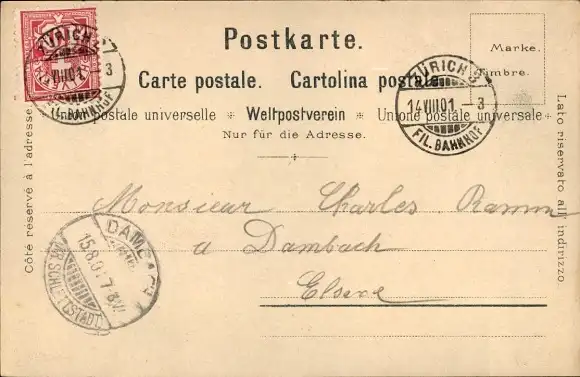 Postkarte.
Marke.
Timbre.
Carte postale. Cartolina postale.
Union postale universelle * Weltpostverein * Unione postale universale
Nur für die Adresse.
Côté réservé à l'adresse.
Lato riservato all' indirizzo.
ZÜRICH
VIII 01 3
FIL. BAHNHOF
ZÜRICH
14 VIII 01 - 3
FIL. BAHNHOF
Monsieur Charles Ramm
a Dambach
Elsace
DAMBACH
15.8.01. 7-8V.
KR. SCHLETTSTADT.